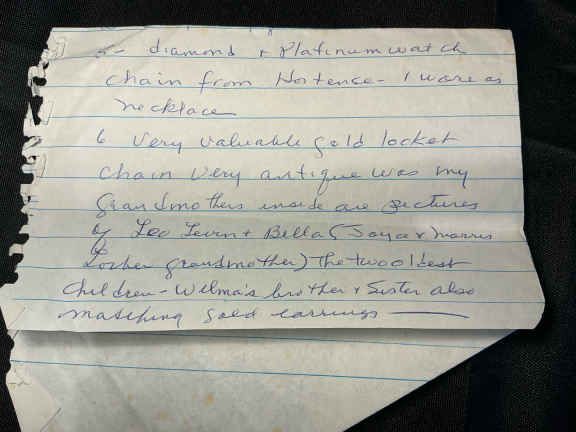 5- diamond + Platinum watch
chain from Hortense - I wore as
necklace
6 Very valuable gold locket
chain very antique was my
Grandmothers inside are pictures
of Leo Levin + Bella (Joya + Morris
grandmother) The two oldest
Children - Wilma's brother + Sister also
matching gold earrings